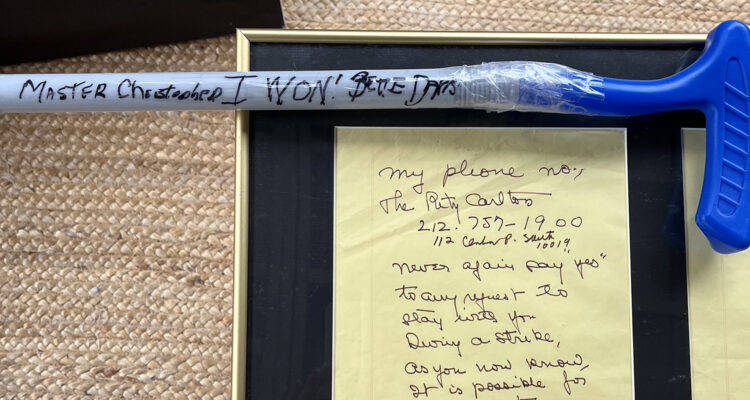 MASTER Christopher I WON! BETTE DAVIS
my phone no.,
The Ritz Carlton
212. 757-1900
112 Central P. South
10019
never again say "yes"
to any request to
stay with you
During a strike,
as you now know,
it is possible for